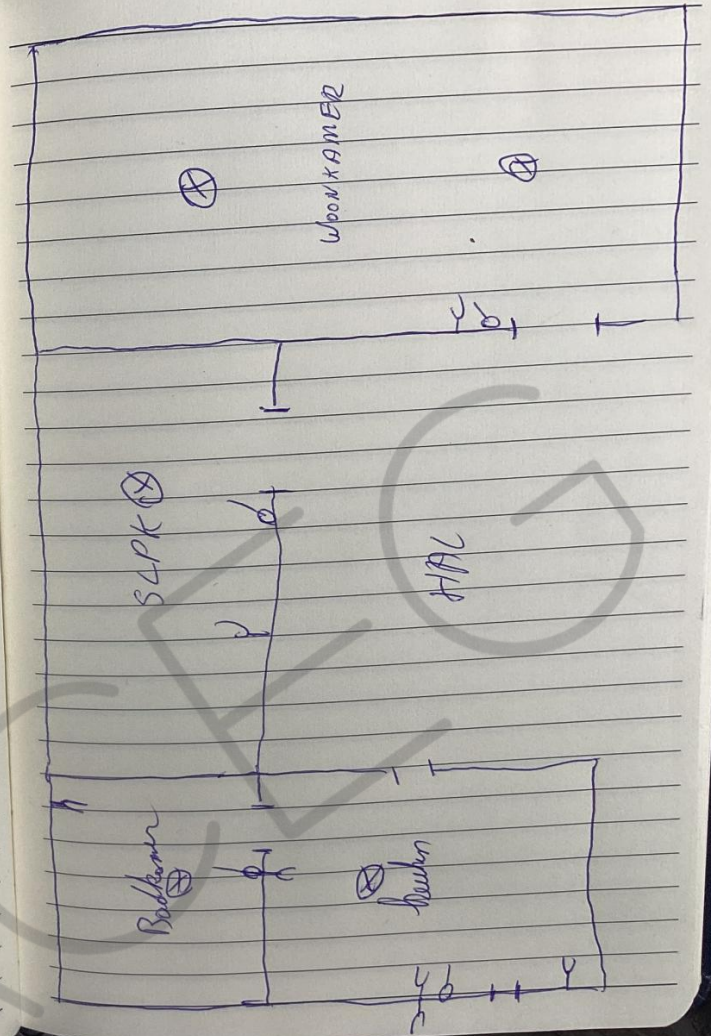 WOONKAMER
SLPK
HAL
Badkamer
keuken